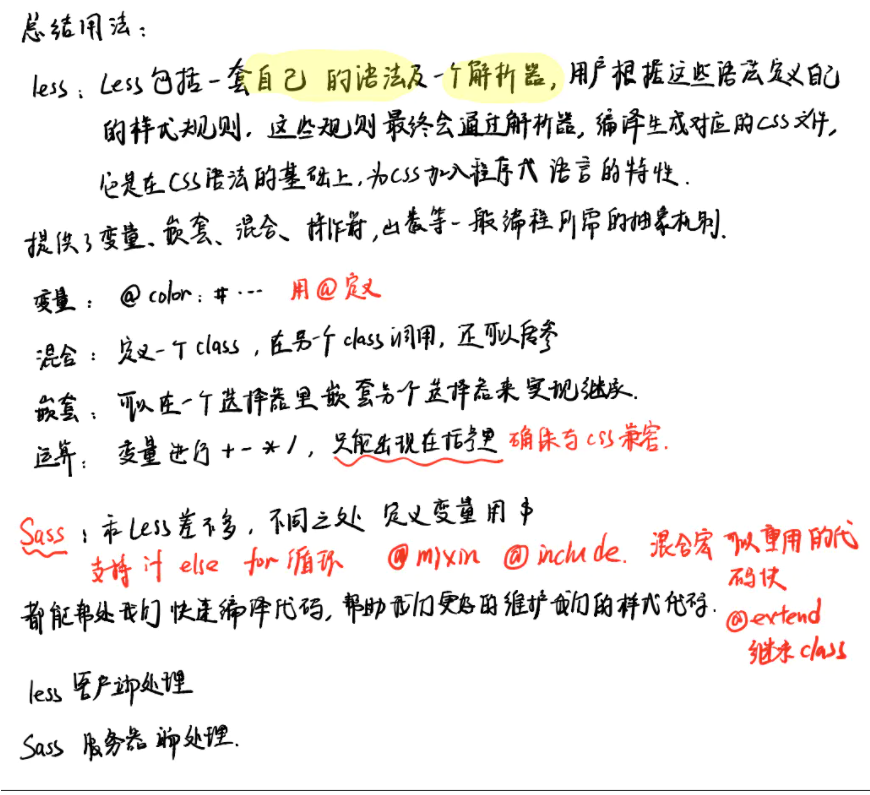 总结用法：
less：Less包括一套自己的语法及一个解析器，用户根据这些语法定义自己
的样式规则，这些规则最终会通过解析器，编译生成对应的CSS文件，
它是在CSS语法的基础上，为CSS加入程序式语言的特性．
提供了变量、嵌套、混合、操作符，函数等一般编程所需的抽象机制．
变量：@color：#… 用@定义
混合：定义一个class，在另一个class调用，还可以传参
嵌套：可以在一个选择器里嵌套另个选择器来实现继承．
运算：变量进行＋－＊/，只能出现在括号里 确保与CSS兼容．
Sass：和Less差不多，不同之处 定义变量用$
支持if else for循环 @mixin @include．混合宏 可以重用的代
码块
都能帮助我们快速编译代码，帮助我们更好的维护我们的样式代码．
@extend
继承class
less 客户端处理
Sass 服务器端处理．